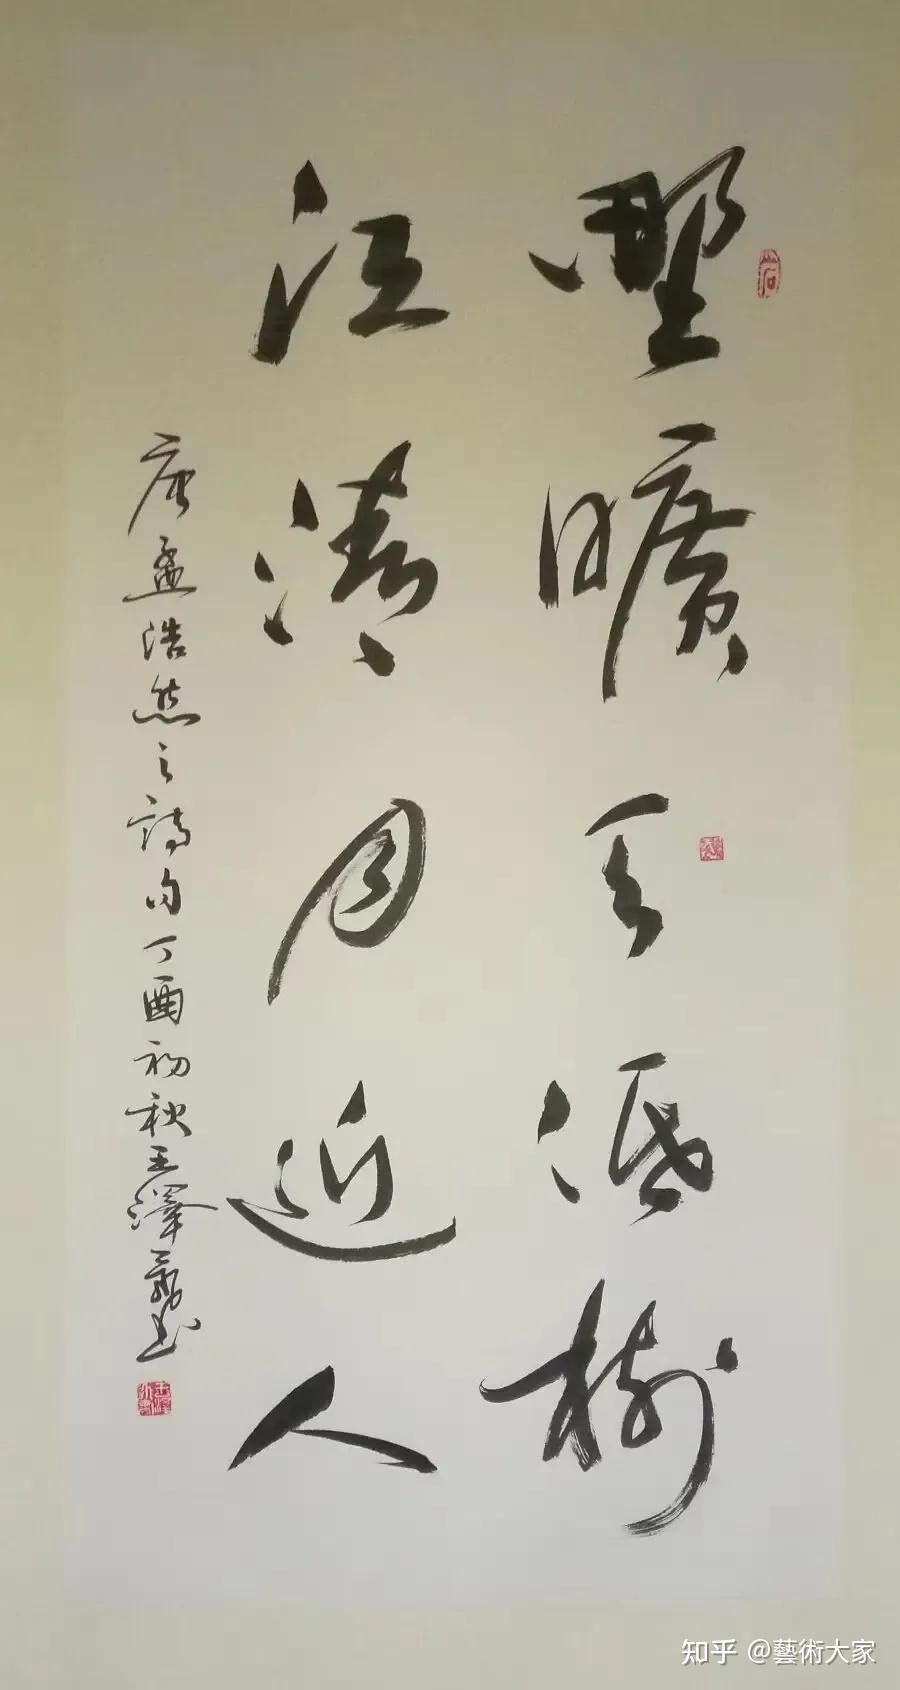 野曠天低樹
江清月近人
唐孟浩然之詩句丁酉初秋王澤
知乎 @藝術大家